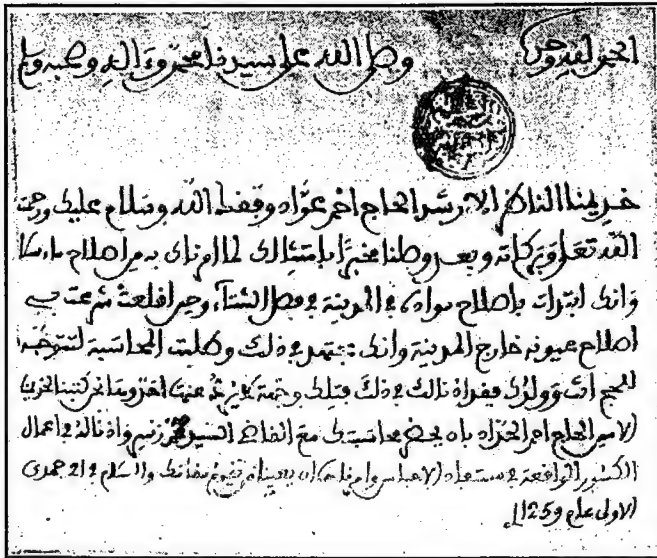 الحمد لله وحده وصلى الله على سيدنا محمد وءاله وصحبه وسلم
خديمنا الناظر الارشد الحاج احمد عواد وفقك الله وسلام عليك ورحمت
الله تعلى وبركاته وبعد وصلنا مخبرا بامتثالك لما امرناك به من اصلاح ماء سلا
وانك ابتدات باصلاح مواده في المدينة في فصل الشتآء وحين اقلعت شرعت في
اصلاح عيونه خارج المدينة وانك مجتهد في ذلك وطلبت المحاسبة لتتوجه
للحج انت وولدك فقد اذنالك في ذلك
الامين الحاج احمد الحداد بان يحضر محاسبتك مع القاضي السيد زنيبر واذنا له في اعمال
الكسور الواقعة في مستفاد الاحباس والسلام في 21 جمدى
الاولى عام 1259